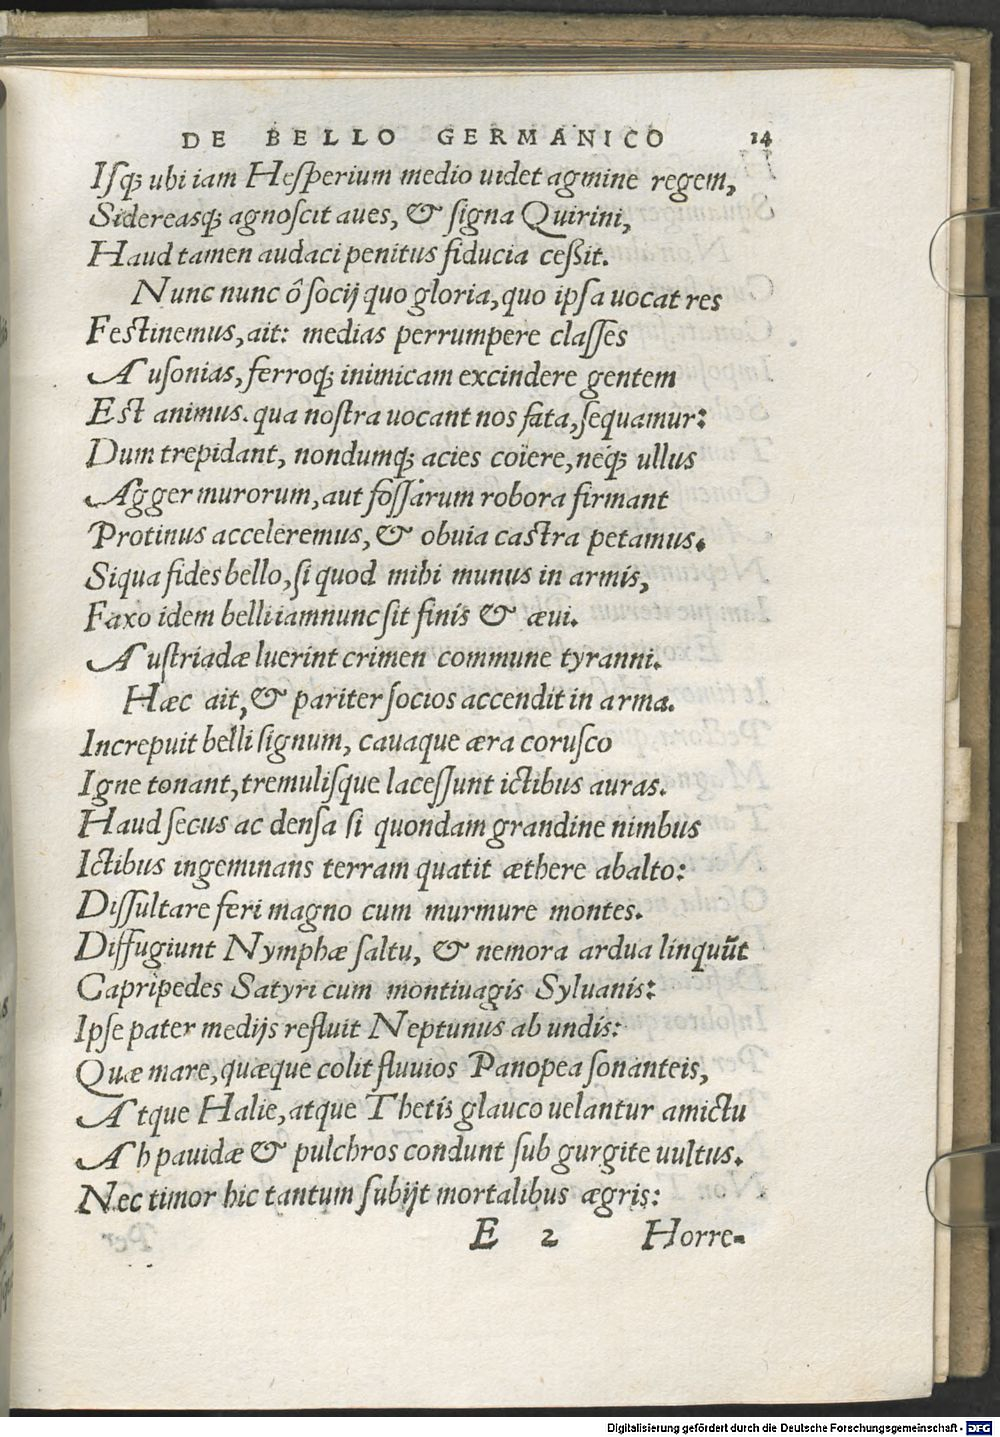 DE BELLO GERMANICO 14
Isq́; ubi iam Hesperium medio uidet agmine regem,
Sidereasq́; agnoscit aues, & signa Quirini,
Haud tamen audaci penitus fiducia ceßit.
Nunc nunc ô socij quo gloria, quo ipsa uocat res
Festinemus, ait: medias perrumpere classes
Ausonias, ferroq́; inimicam excindere gentem
Est animus. qua nostra uocant nos fata, sequamur:
Dum trepidant, nondumq́; acies coiere, neq́; ullus
Agger murorum, aut fossarum robora firmant
Protinus acceleremus, & obuia castra petamus.
Siqua fides bello, si quod mihi munus in armis,
Faxo idem belli iamnunc sit finis & æui.
Austriadæ luerint crimen commune tyranni.
Hæc ait, & pariter socios accendit in arma.
Increpuit belli signum, cauaque æra corusco
Igne tonant, tremulisque lacessunt ictibus auras.
Haud secus ac densa si quondam grandine nimbus
Ictibus ingeminans terram quatit æthere abalto:
Dissultare feri magno cum murmure montes.
Diffugiunt Nymphæ saltu, & nemora ardua linquūt
Capripedes Satyri cum montiuagis Syluanis:
Ipse pater medijs refluit Neptunus ab undis:
Quæ mare, quæque colit fluuios Panopea sonanteis,
Atque Halie, atque Thetis glauco uelantur amictu
Ah pauidæ & pulchros condunt sub gurgite uultus.
Nec timor hic tantum subijt mortalibus ægris:
E 2 Horre-
Digitalisierung gefördert durch die Deutsche Forschungsgemeinschaft - DFG